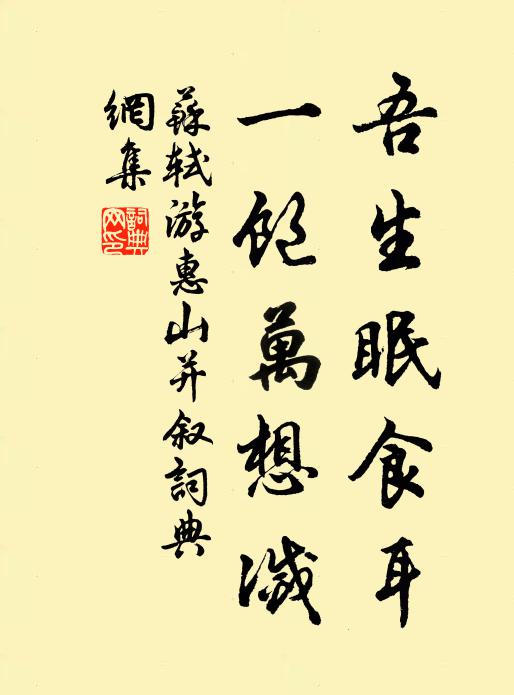 吾生眠食耳
一飽萬想滅
蘇軾游惠山并叙詞典
網集
詞典
网印